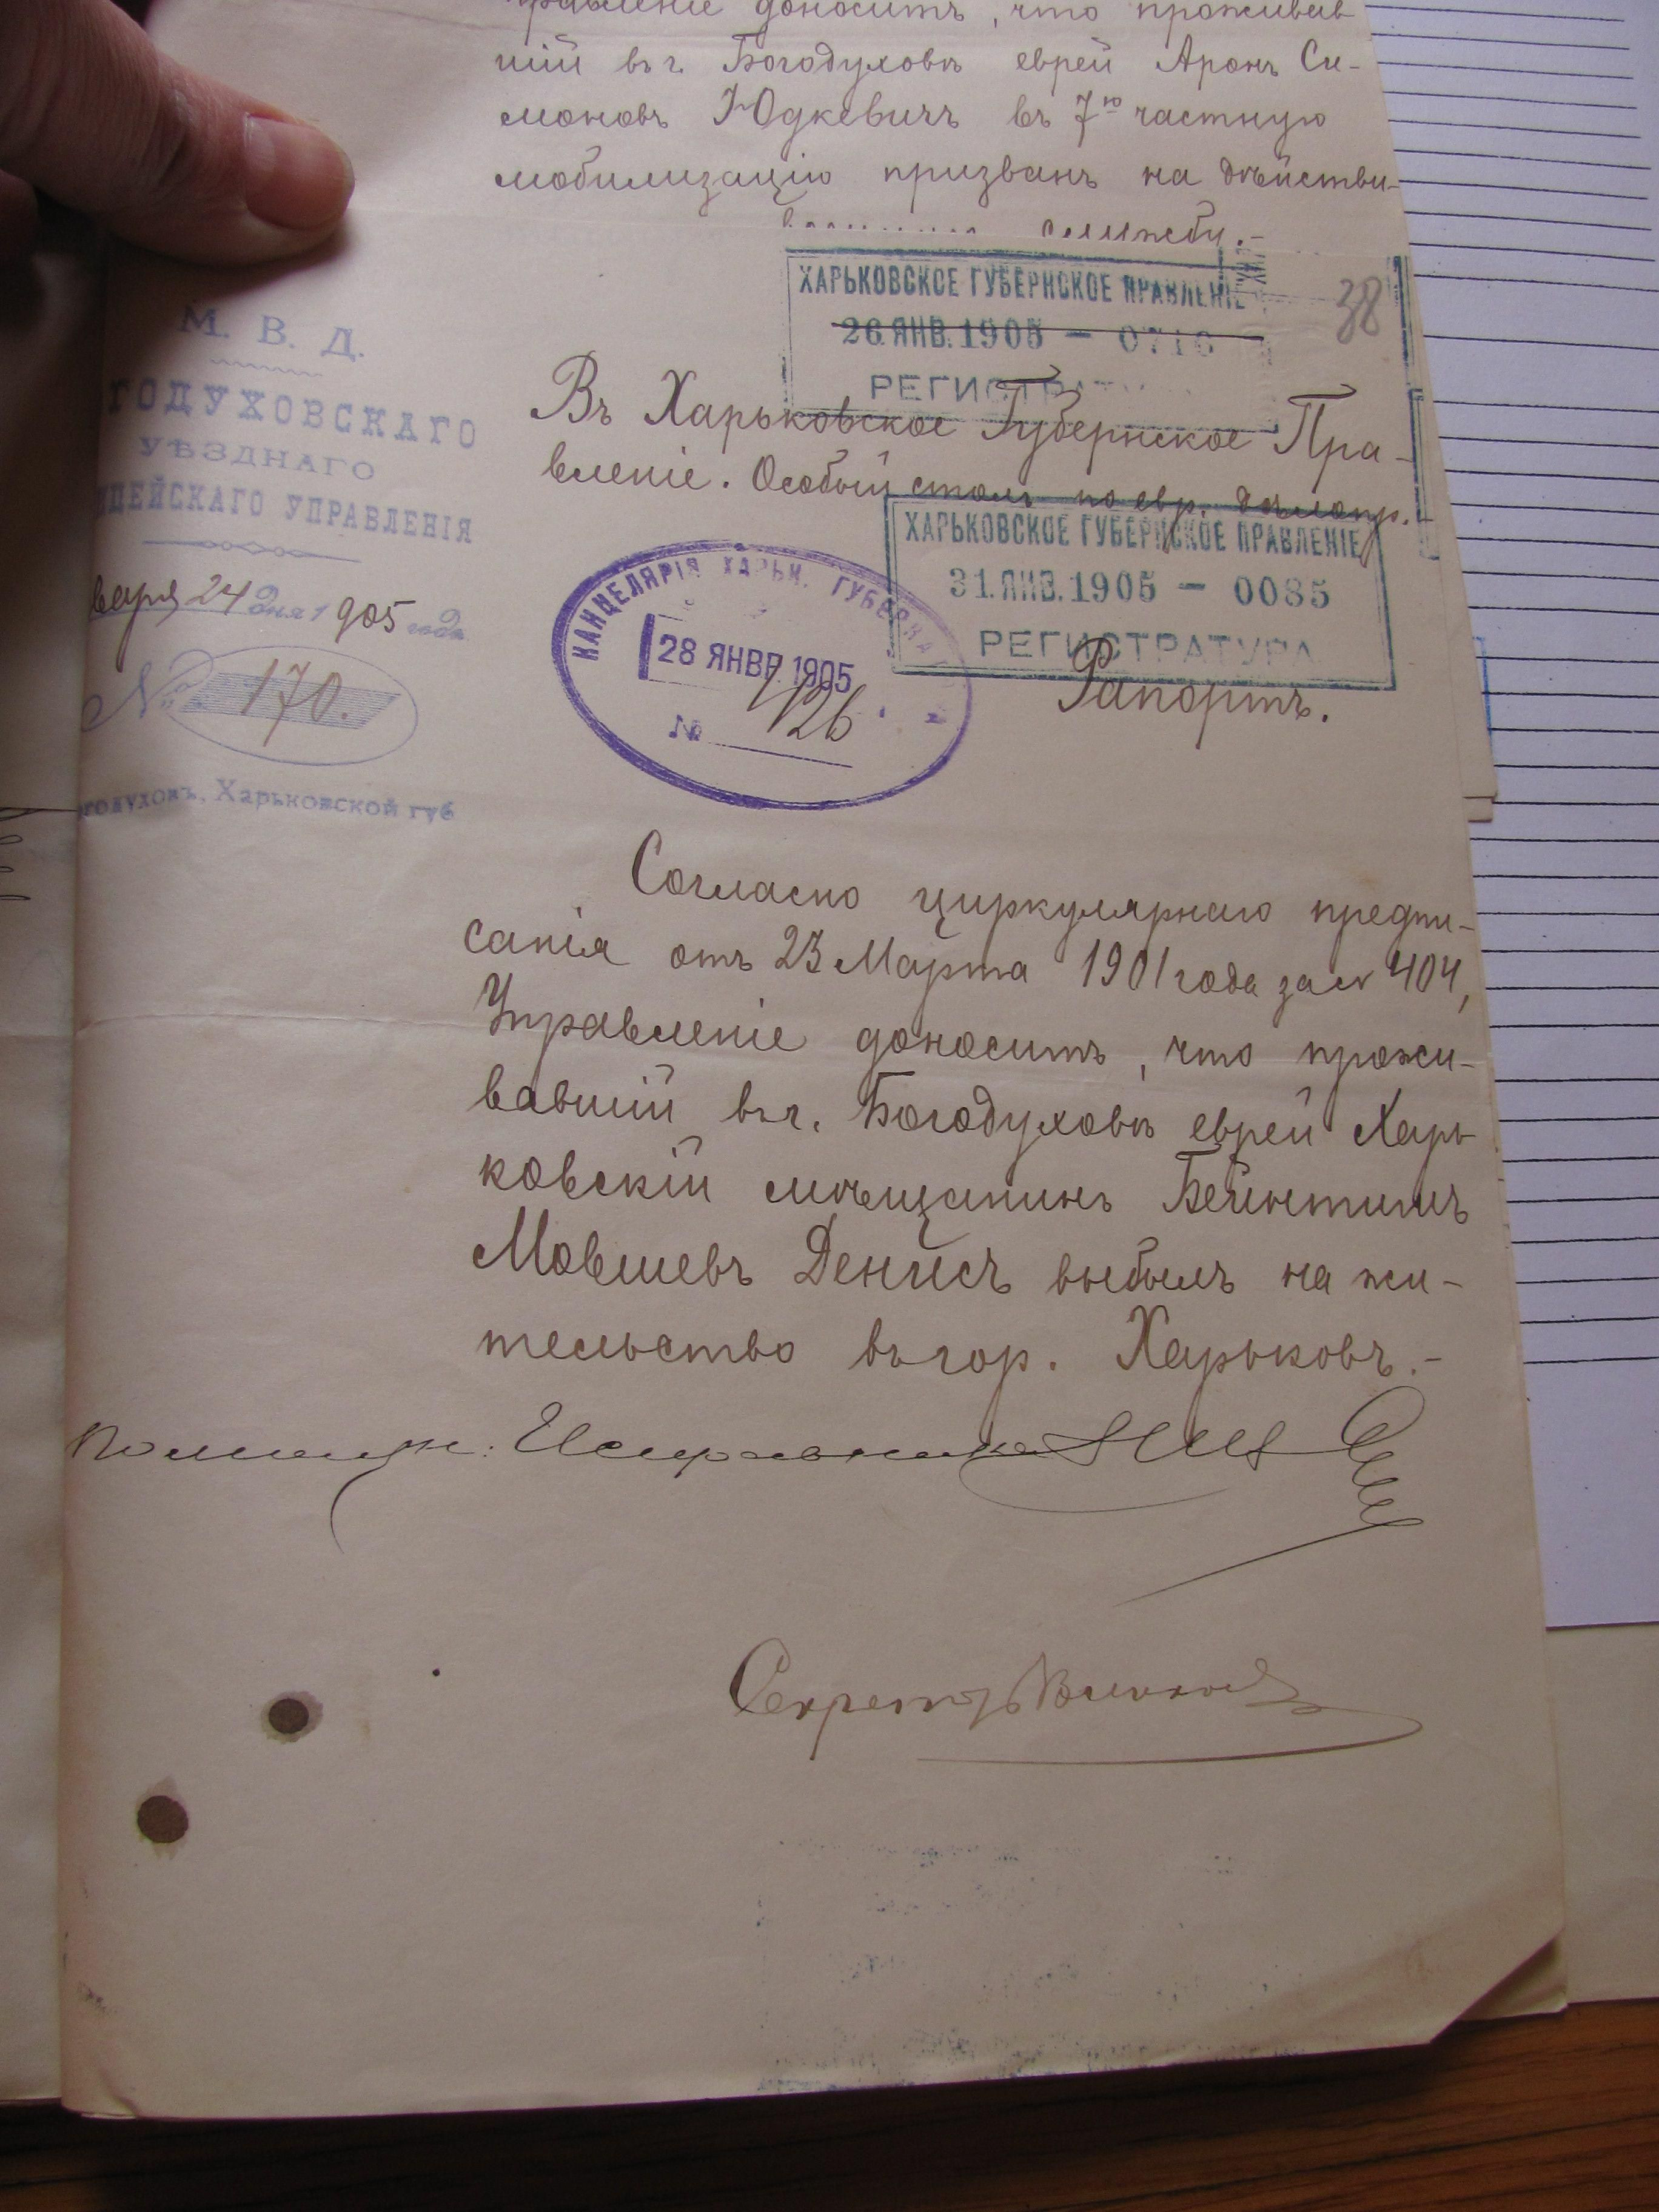 правленіе доноситъ, что проживав
шій въ г. Богодуховѣ еврей Аронъ Си-
моновъ Юдкевичъ въ 7ю частную
мобилизацію призванъ на дѣйстви-
службу.-
ХАРЬКОВСКОЕ ГУБЕРНСКОЕ ПРАВЛЕНІЕ
26.ЯНВ.1905 — 0716
РЕГИСТРАТ
38
М. В. Д.
ГОДУХОВСКАГО
УѢЗДНАГО
ИЦЕЙСКАГО УПРАВЛЕНІЯ
варя 24 дня 1905 года
№ 170.
огодуховъ, Харьковской губ
Въ Харьковское Губернское Пра-
вленіе. Особый столъ по евр. дѣлопр.-
ХАРЬКОВСКОЕ ГУБЕРНСКОЕ ПРАВЛЕНІЕ
31.ЯНВ.1905 — 0085
РЕГИСТРАТУРА
КАНЦЕЛЯРІЯ ХАРЬК. ГУБЕРНАТ
28 ЯНВР. 1905
№ 1126
Рапортъ.
Согласно циркулярнаго предпи-
санія отъ 23 Марта 1901 года за № 404,
Управленіе доноситъ, что прожи-
вавшій въ г. Богодуховѣ еврей Харь
ковскій мѣщанинъ Бейнтишъ
Мовшевъ Денисъ выбылъ на жи-
тельство въ гор. Харьковъ.-
Помощн. Исправника
Секретарь